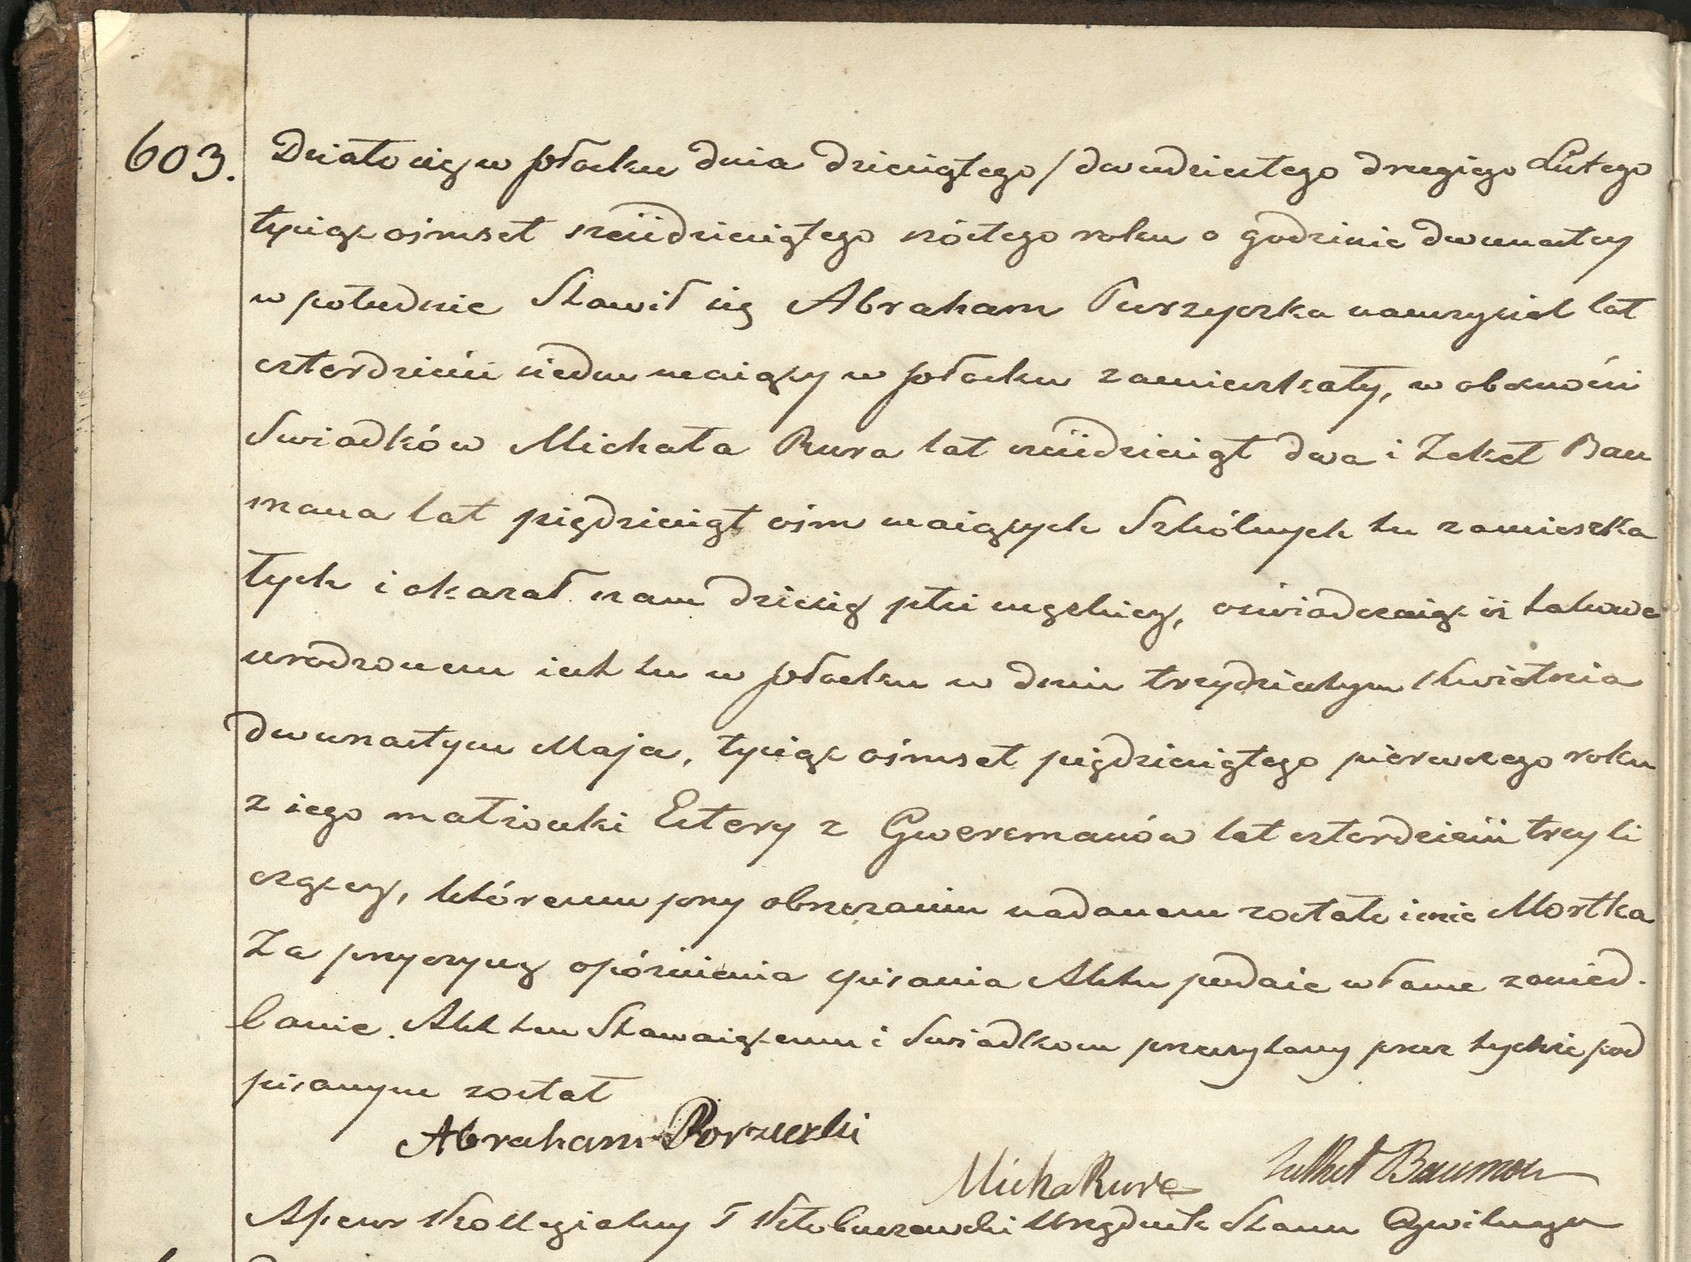 603. Działo się w Płocku dnia dziesiątego / dwudziestego drugiego Lutego
tysiąc ośmset sześćdziesiątego szóstego roku o godzinie dwunastej
w południe Stawił się Abraham Purzyczka nauczyciel lat
czterdzieści siedm maiący w Płocku zamieszkały, w obecności
Swiadków Michała Rura lat sześćdziesiąt dwa i Zekel Bau
mana lat piędziesiąt ośm maiących Szkólnych tu zamieszka
łych i okazał nam dziecię płci męzkiey, oświadczaiąc iż takowe
urodzonem iest tu w Płocku w dniu trzydziestym Kwietnia
dwunastym Maja, tysiąc ośmset piędziesiątego pierwszego roku
z iego małżonki Estery z Gwercmanów lat czterdzieści trzy li
czącey, któremu przy obrzezaniu nadanem zostało imie Mortka
Za przyczynę opóźnienia spisania Aktu podaie własne zanied-
banie. Akt ten Stawaiącemu i Swiadkom przeczytany przez tychże pod
pisanym został
Abraham Porzuczki
Micha Rure Bauman
Assesor Kollegialny Urzędnik Stanu Cywilnego